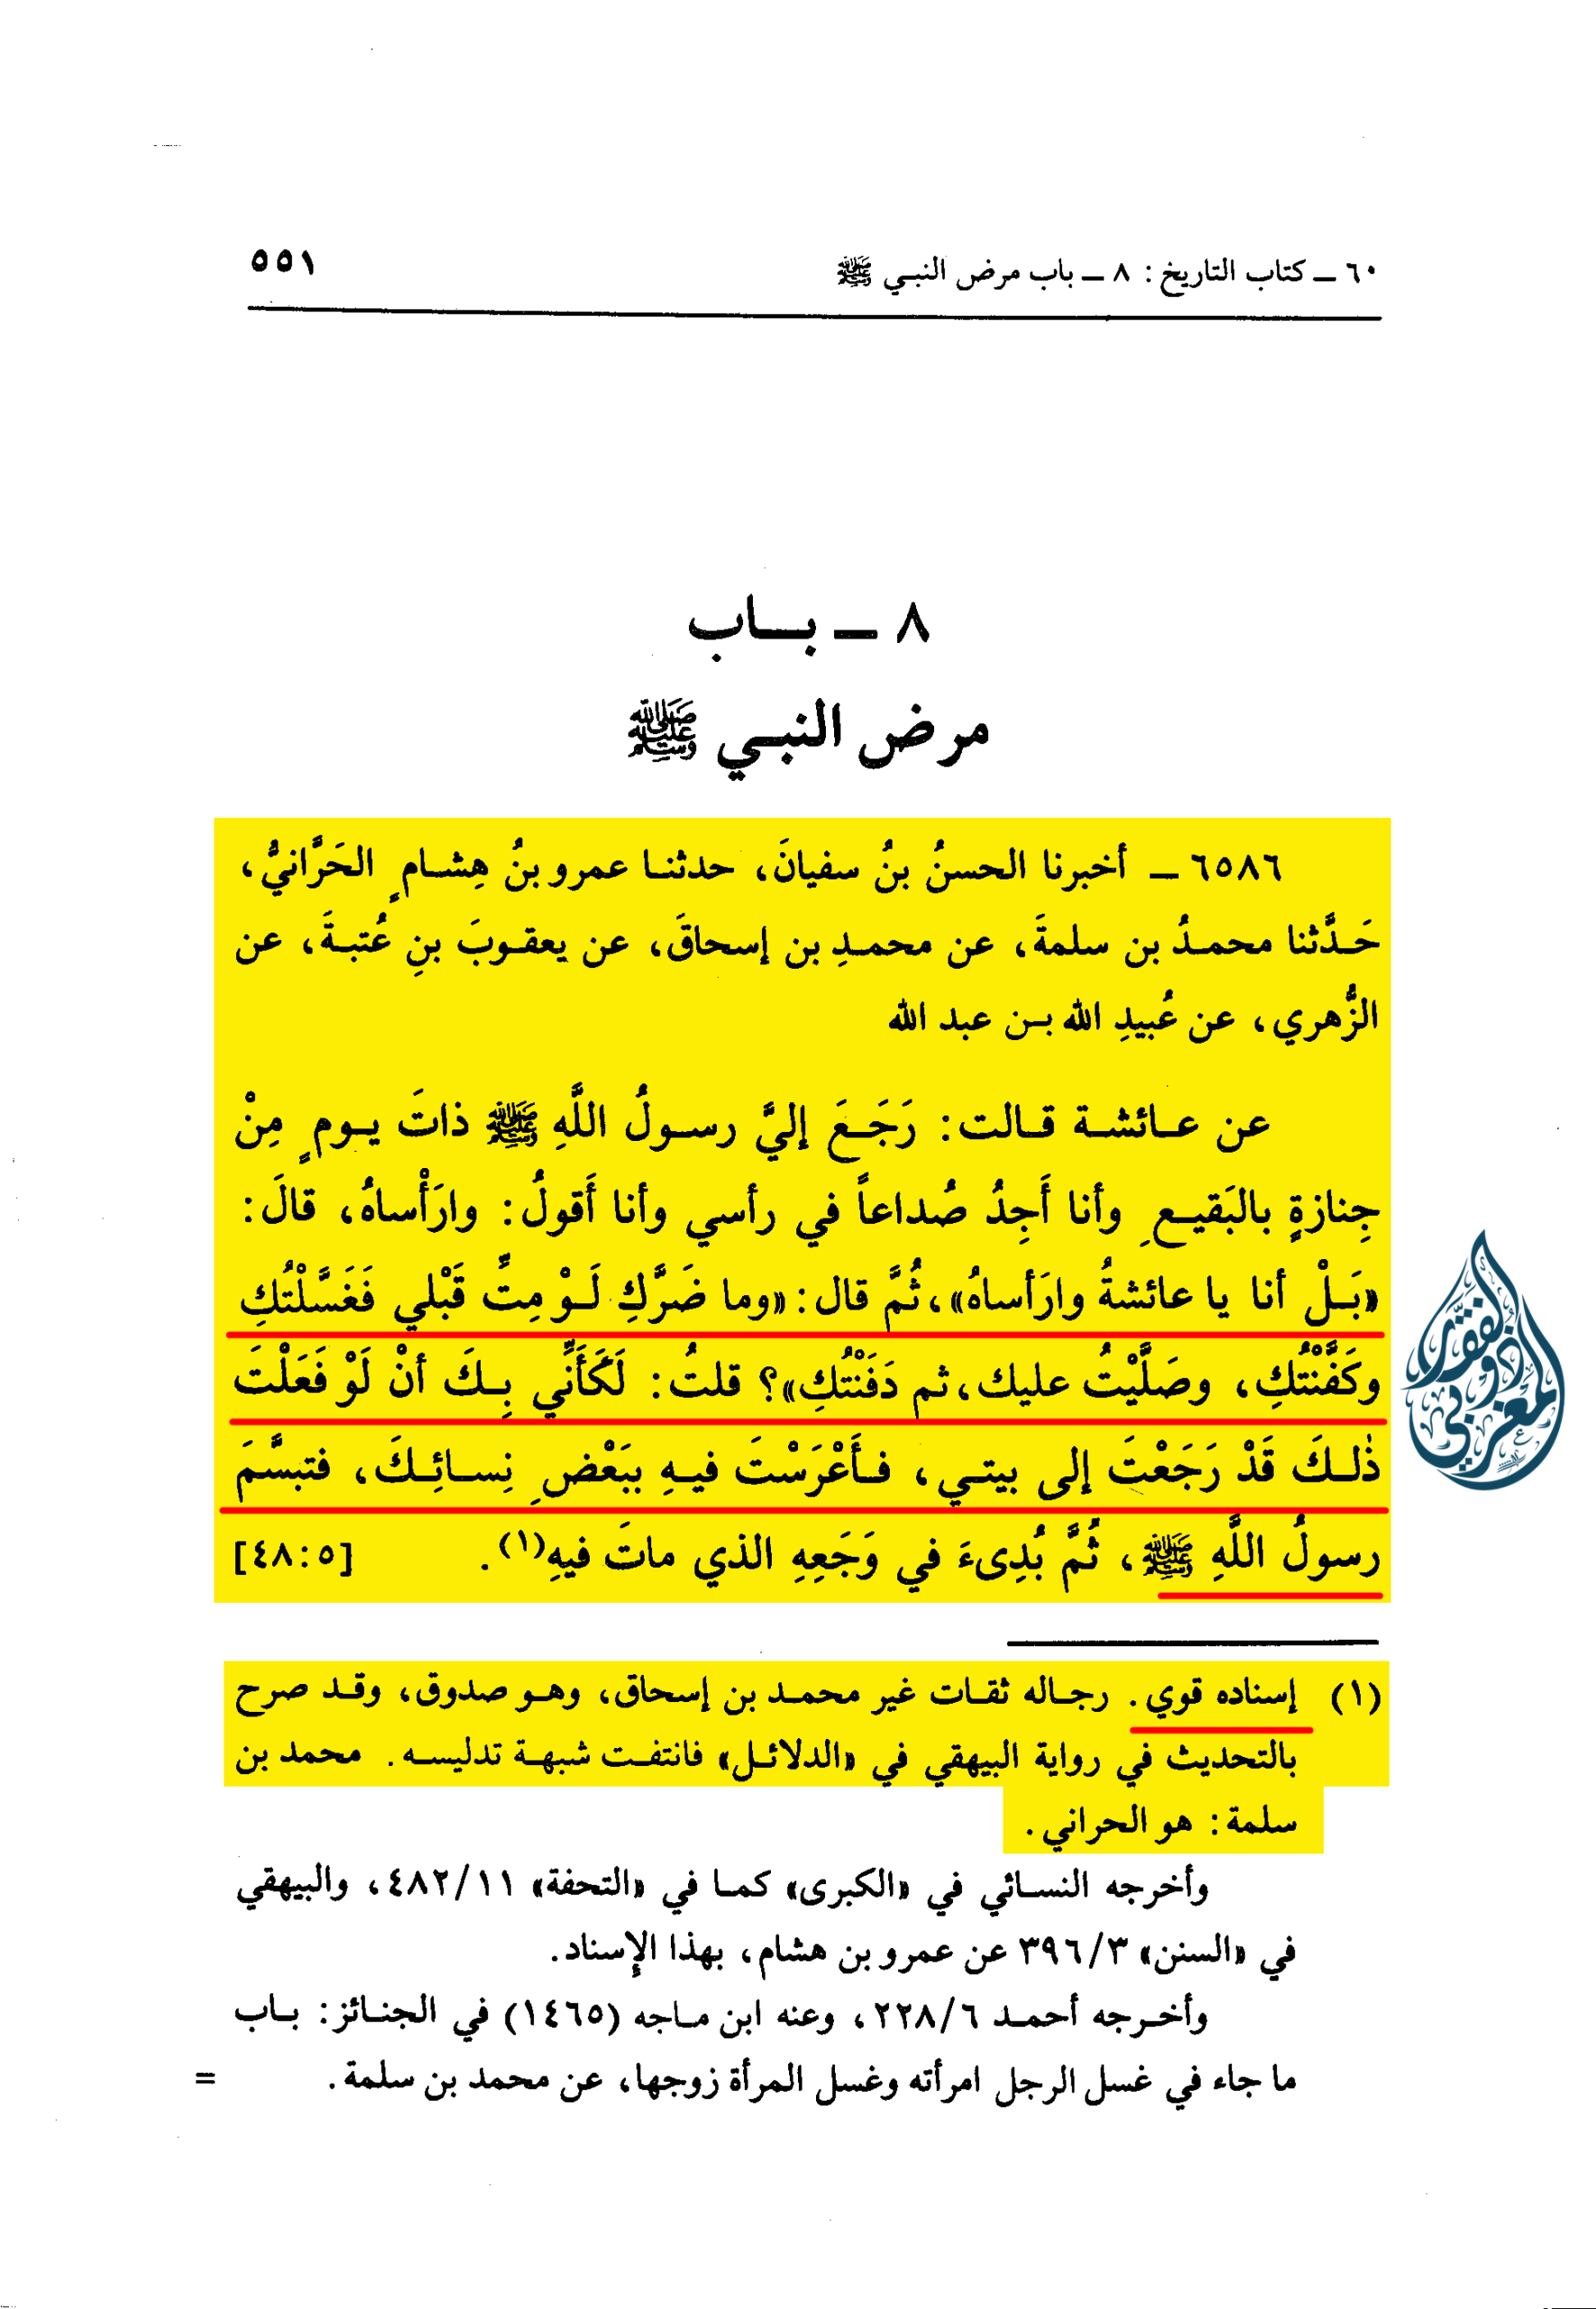 ٦٠ ــ كتاب التاريخ : ٨ ــ باب مرض النبي ﷺ ٥٥١
٨ ــ بــاب
مرض النبي ﷺ
٦٥٨٦ ــ أخبرنا الحسنُ بنُ سفيانَ، حدثنا عمرو بنُ هِشامٍ الحَرَّانيُّ،
حَدَّثنا محمدُ بن سلمةَ، عن محمدِ بن إسحاقَ، عن يعقوبَ بنِ عُتبةَ، عن
الزُّهري، عن عُبيدِ الله بن عبد الله
عن عائشة قالت: رَجَعَ إليَّ رسولُ اللَّهِ ﷺ ذاتَ يومٍ مِنْ
جِنازةٍ بالبَقيعِ وأنا أَجِدُ صُداعاً في رأسي وأنا أَقولُ: وارَأْساهُ، قالَ:
«بَلْ أنا يا عائشةُ وارَأساهُ»، ثُمَّ قال: «وما ضَرَّكِ لَوْ مِتِّ قَبْلي فَغَسَّلْتُكِ
وكَفَّنْتُكِ، وصَلَّيْتُ عليك، ثم دَفَنْتُكِ»؟ قلتُ: لَكَأَنِّي بِكَ أنْ لَوْ فَعَلْتَ
ذٰلكَ قَدْ رَجَعْتَ إلى بيتي، فأَعْرَسْتَ فيهِ ببَعْضِ نِسائِكَ، فتبسَّمَ
رسولُ اللَّهِ ﷺ، ثُمَّ بُدِىءَ في وَجَعِهِ الذي ماتَ فيهِ(١). [٤٨:٥]
(١) إسناده قوي. رجاله ثقات غير محمد بن إسحاق، وهو صدوق، وقد صرح
بالتحديث في رواية البيهقي في «الدلائل» فانتفت شبهة تدليسه. محمد بن
سلمة: هو الحراني.
وأخرجه النسائي في «الكبرى» كما في «التحفة» ٤٨٢/١١، والبيهقي
في «السنن» ٣٩٦/٣ عن عمرو بن هشام، بهذا الإسناد.
وأخرجه أحمد ٢٢٨/٦، وعنه ابن ماجه (١٤٦٥) في الجنائز: باب
ما جاء في غسل الرجل امرأته وغسل المرأة زوجها، عن محمد بن سلمة. =